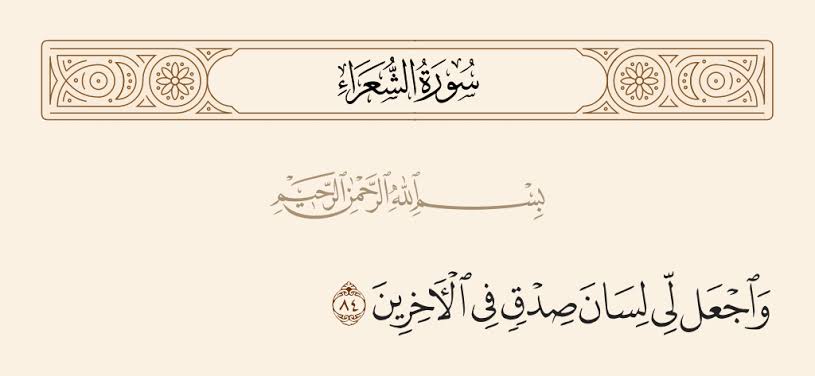 سُورَةُ الشُّعَرَاءِ
بِسْمِ ٱللَّهِ ٱلرَّحْمَٰنِ ٱلرَّحِيمِ
وَٱجْعَل لِّي لِسَانَ صِدْقٍ فِي ٱلْآخِرِينَ ٨٤